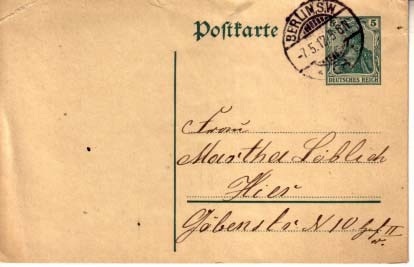 Postkarte
BERLIN.S.W.
-7.5.12.5-6N.
5
DEUTSCHES REICH
Frau
Martha Löblich
Hier
Göbenstr N 10
II